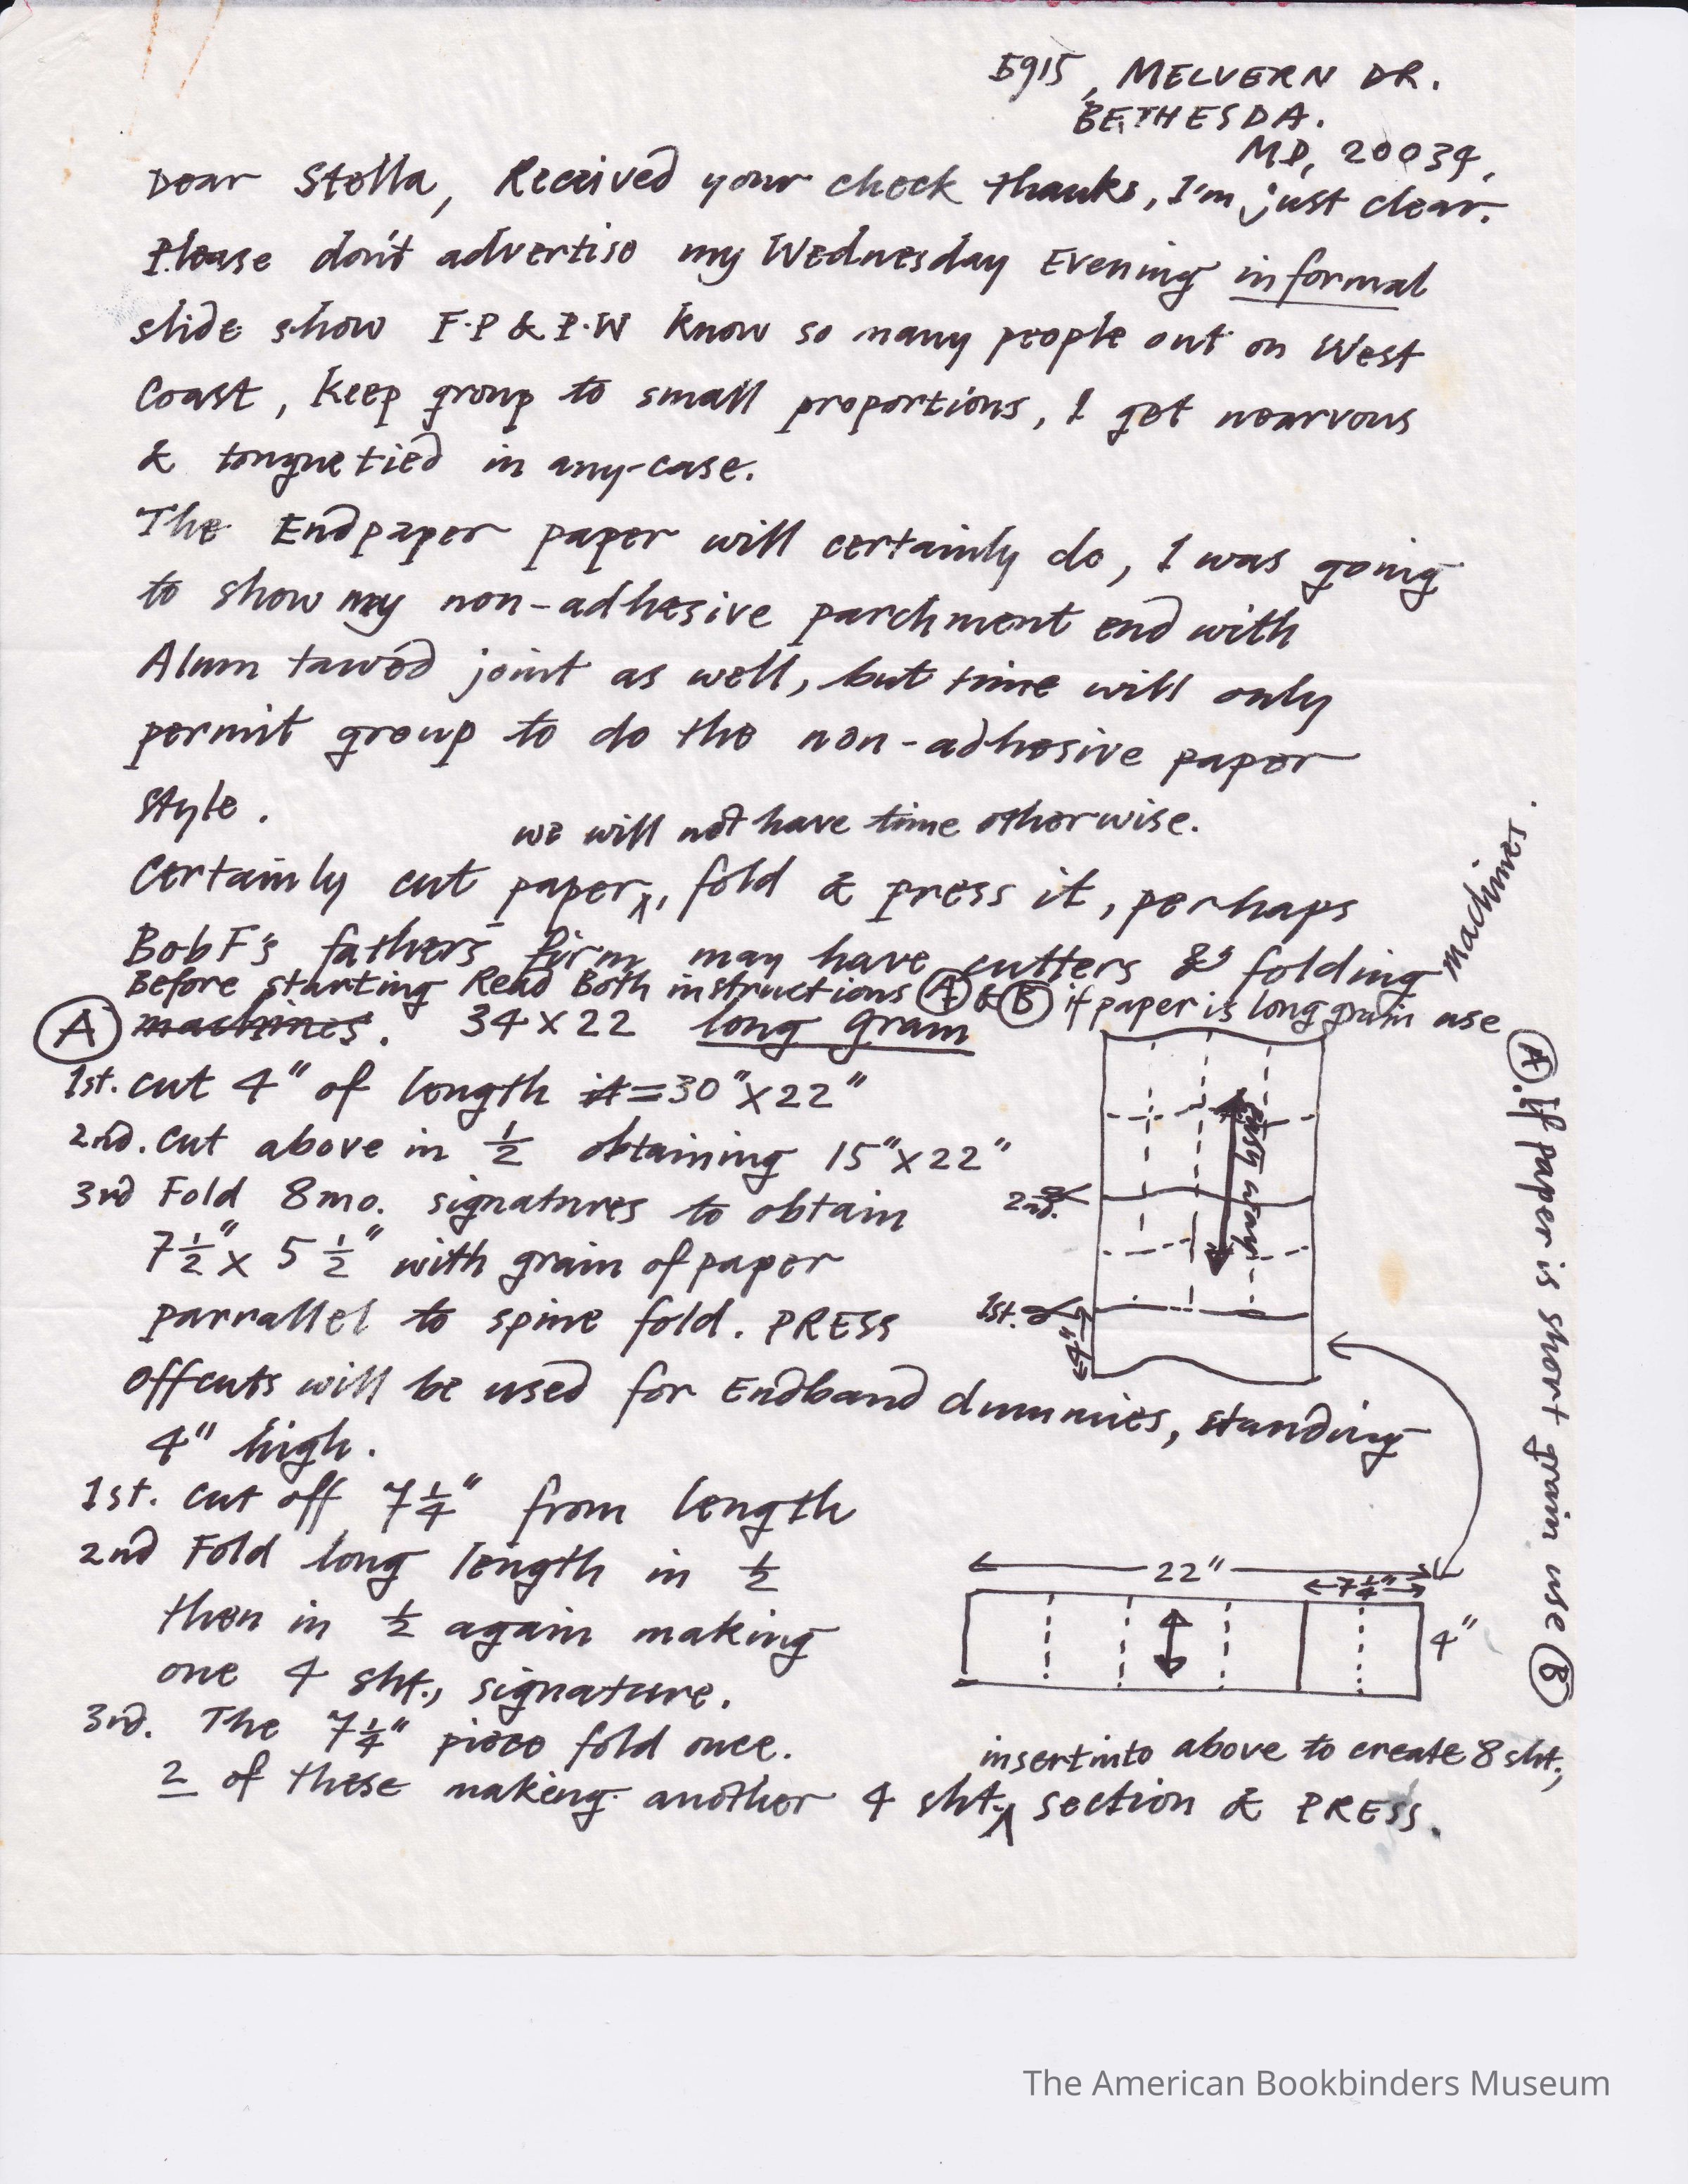 5915, MELVERN DR.
BETHESDA.
MD, 20034,
Dear Stella, Received your check thanks, I'm just clear.
Please don't advertise my Wednesday Evening informal
slide show F.P & P.W know so many people out on West
Coast, keep group to small proportions, I get nearvous
& tongue tied in any-case.
The Endpaper paper will certainly do, I was going
to show my non-adhesive parchment end with
Alum tawed joint as well, but time will only
permit group to do the non-adhesive paper
style.
we will not have time otherwise.
Certainly cut paper, fold & press it, perhaps
Bob F's fathers firm may have cutters & folding machines.
Before starting Read Both instructions A & B if paper is long grain use
A. If paper is short grain use B
A machines. 34 x 22 long grain
1st. cut 4" of length it = 30" x 22"
2nd. cut above in 1/2 obtaining 15" x 22"
3rd Fold 8mo. signatures to obtain
7 1/2" x 5 1/2" with grain of paper
parrallel to spine fold. PRESS
2nd.
1st.
4"
offcuts will be used for Endband dummies, standing
4" high.
1st. cut off 7 1/4" from length
2nd Fold long length in 1/2
then in 1/2 again making
one 4 sht., signature.
22"
7 1/4"
4"
3rd. The 7 1/4" piece fold once.
insert into above to create 8 sht.,
2 of these making another 4 sht., section & PRESS.
The American Bookbinders Museum